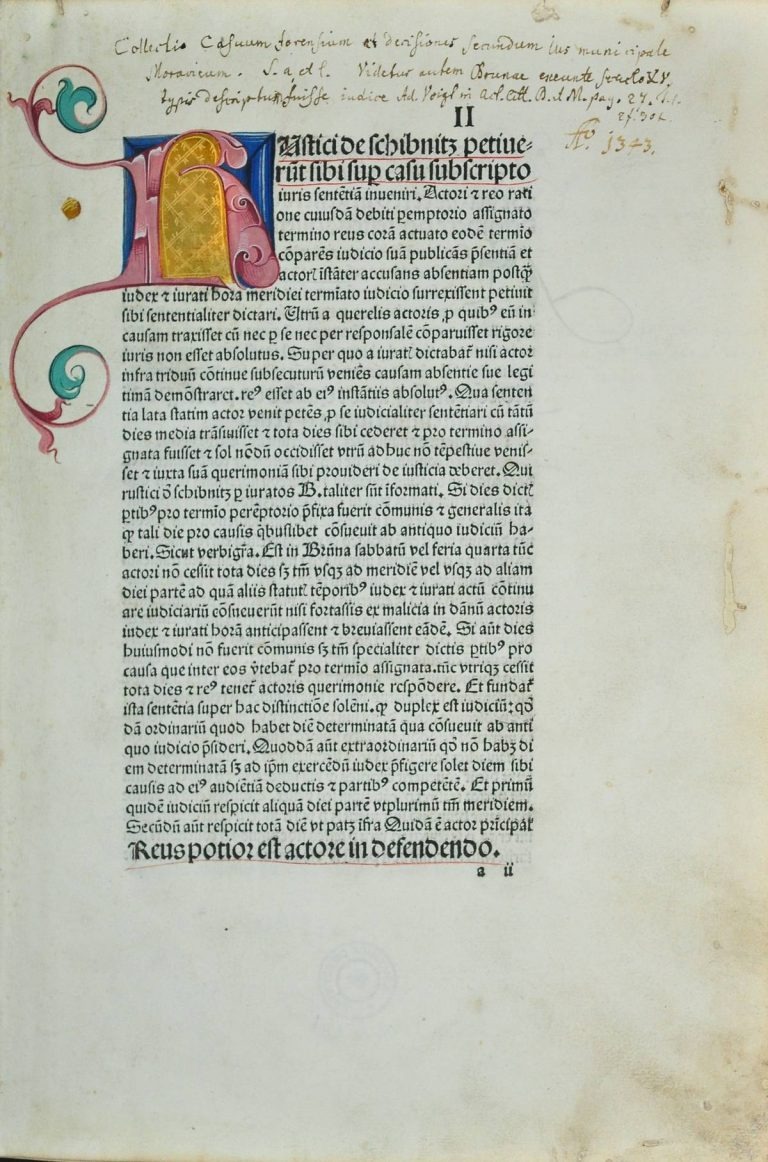 Collectio Casuum forensium et decisiones secundum Ius municipale
Moravicum. S. a. et l. Videtur autem Brunae exeunte seculo XV.
typis descriptum fuisse iudice Ad. Voigt in Act. litt. B. et M. pag. 27.
II
Aº. 1343.
RUstici de schibnitz petiue-
rūt sibi suꝑ casu subscripto
iuris sentētiā inueniri. Actori ⁊ reo rati
one cuiusdā debiti ꝑemptorio assignato
termino reus corā actuato eodē termīo
cōparēs iudicio suā publicās p̄sentiā et
actorꝭ īstāter accusans absentiam postꝙ̄
iudex ⁊ iurati hora meridiei termīato iudicio surrexissent petiuit
sibi sententialiter dictari. Utrū a querelis actoris ,p quibꝰ eū in
causam traxisset cū nec ꝑ se nec per responsalē cōparuisset rigore
iuris non esset absolutus. Super quo a iuratꝭ dictabat᷑ nisi actor
infra triduū cōtinue subsecuturū veniēs causam absentie sue legi
timā demōstraret. reꝰ esset ab eiꝰ instātiis absolutꝰ. Qua senten
tia lata statim actor venit petēs ,p se iudicialiter sentētiari cū tātū
dies media trāsiuisset ⁊ tota dies sibi cederet ⁊ pro termino assi-
gnata fuisset ⁊ sol nōdū occidisset vtrū adhuc nō tēpestiue venis-
set ⁊ iuxta suā querimoniā sibi prouideri de iusticia deberet. Qui
rustici ō schibnitz ꝑ iuratos B. taliter sūt īformati. Si dies dictꝭ
ꝑtibꝰ pro termīo perēptorio p̄fixa fuerit cōmunis ⁊ generalis ita
ꝙ tali die pro causis q̄buslibet cōsueuit ab antiquo iudiciū ha-
beri. Sicut verbigr̄a. Est in Brūna sabbatū vel feria quarta tūc
actori nō cessit tota dies sꝫ tm̄ vsqꝫ ad meridiē vel vsqꝫ ad aliam
diei partē ad quā aliis statutꝭ tēporibꝰ iudex ⁊ iurati actū cōtinu
are iudiciariū cōsueuerūt nisi fortassis ex malicia in dānū actoris
iudex ⁊ iurati horā anticipassent ⁊ breuiassent eādē. Si aūt dies
huiusmodi nō fuerit cōmunis sꝫ tm̄ specialiter dictis ꝑtibꝰ pro
causa que inter eos v̄tebat᷑ pro termīo assignata. tūc vtriqꝫ cessit
tota dies ⁊ reꝰ tenet᷑ actoris querimonie respōdere. Et fundat᷑
ista sentētia super hac distinctiōe solēni. ꝙ duplex est iudiciū: qō
dā ordinariū quod habet diē determinatā qua cōsueuit ab anti
quo iudicio p̄sideri. Quoddā aūt extraordinariū qō nō habꝫ di
em determinatā sꝫ ad ip̄m exercēdū iudex p̄figere solet diem sibi
causis ad eiꝰ audiētiā deductis ⁊ partibꝰ competētē. Et primū
quidē iudiciū respicit aliquā diei partē vtplurimū tm̄ meridiem.
Secūdū aūt respicit totā diē vt patꝫ īfra Quidā ē actor prīcipalꝭ
Reus potior est actore in defendendo.
a ii